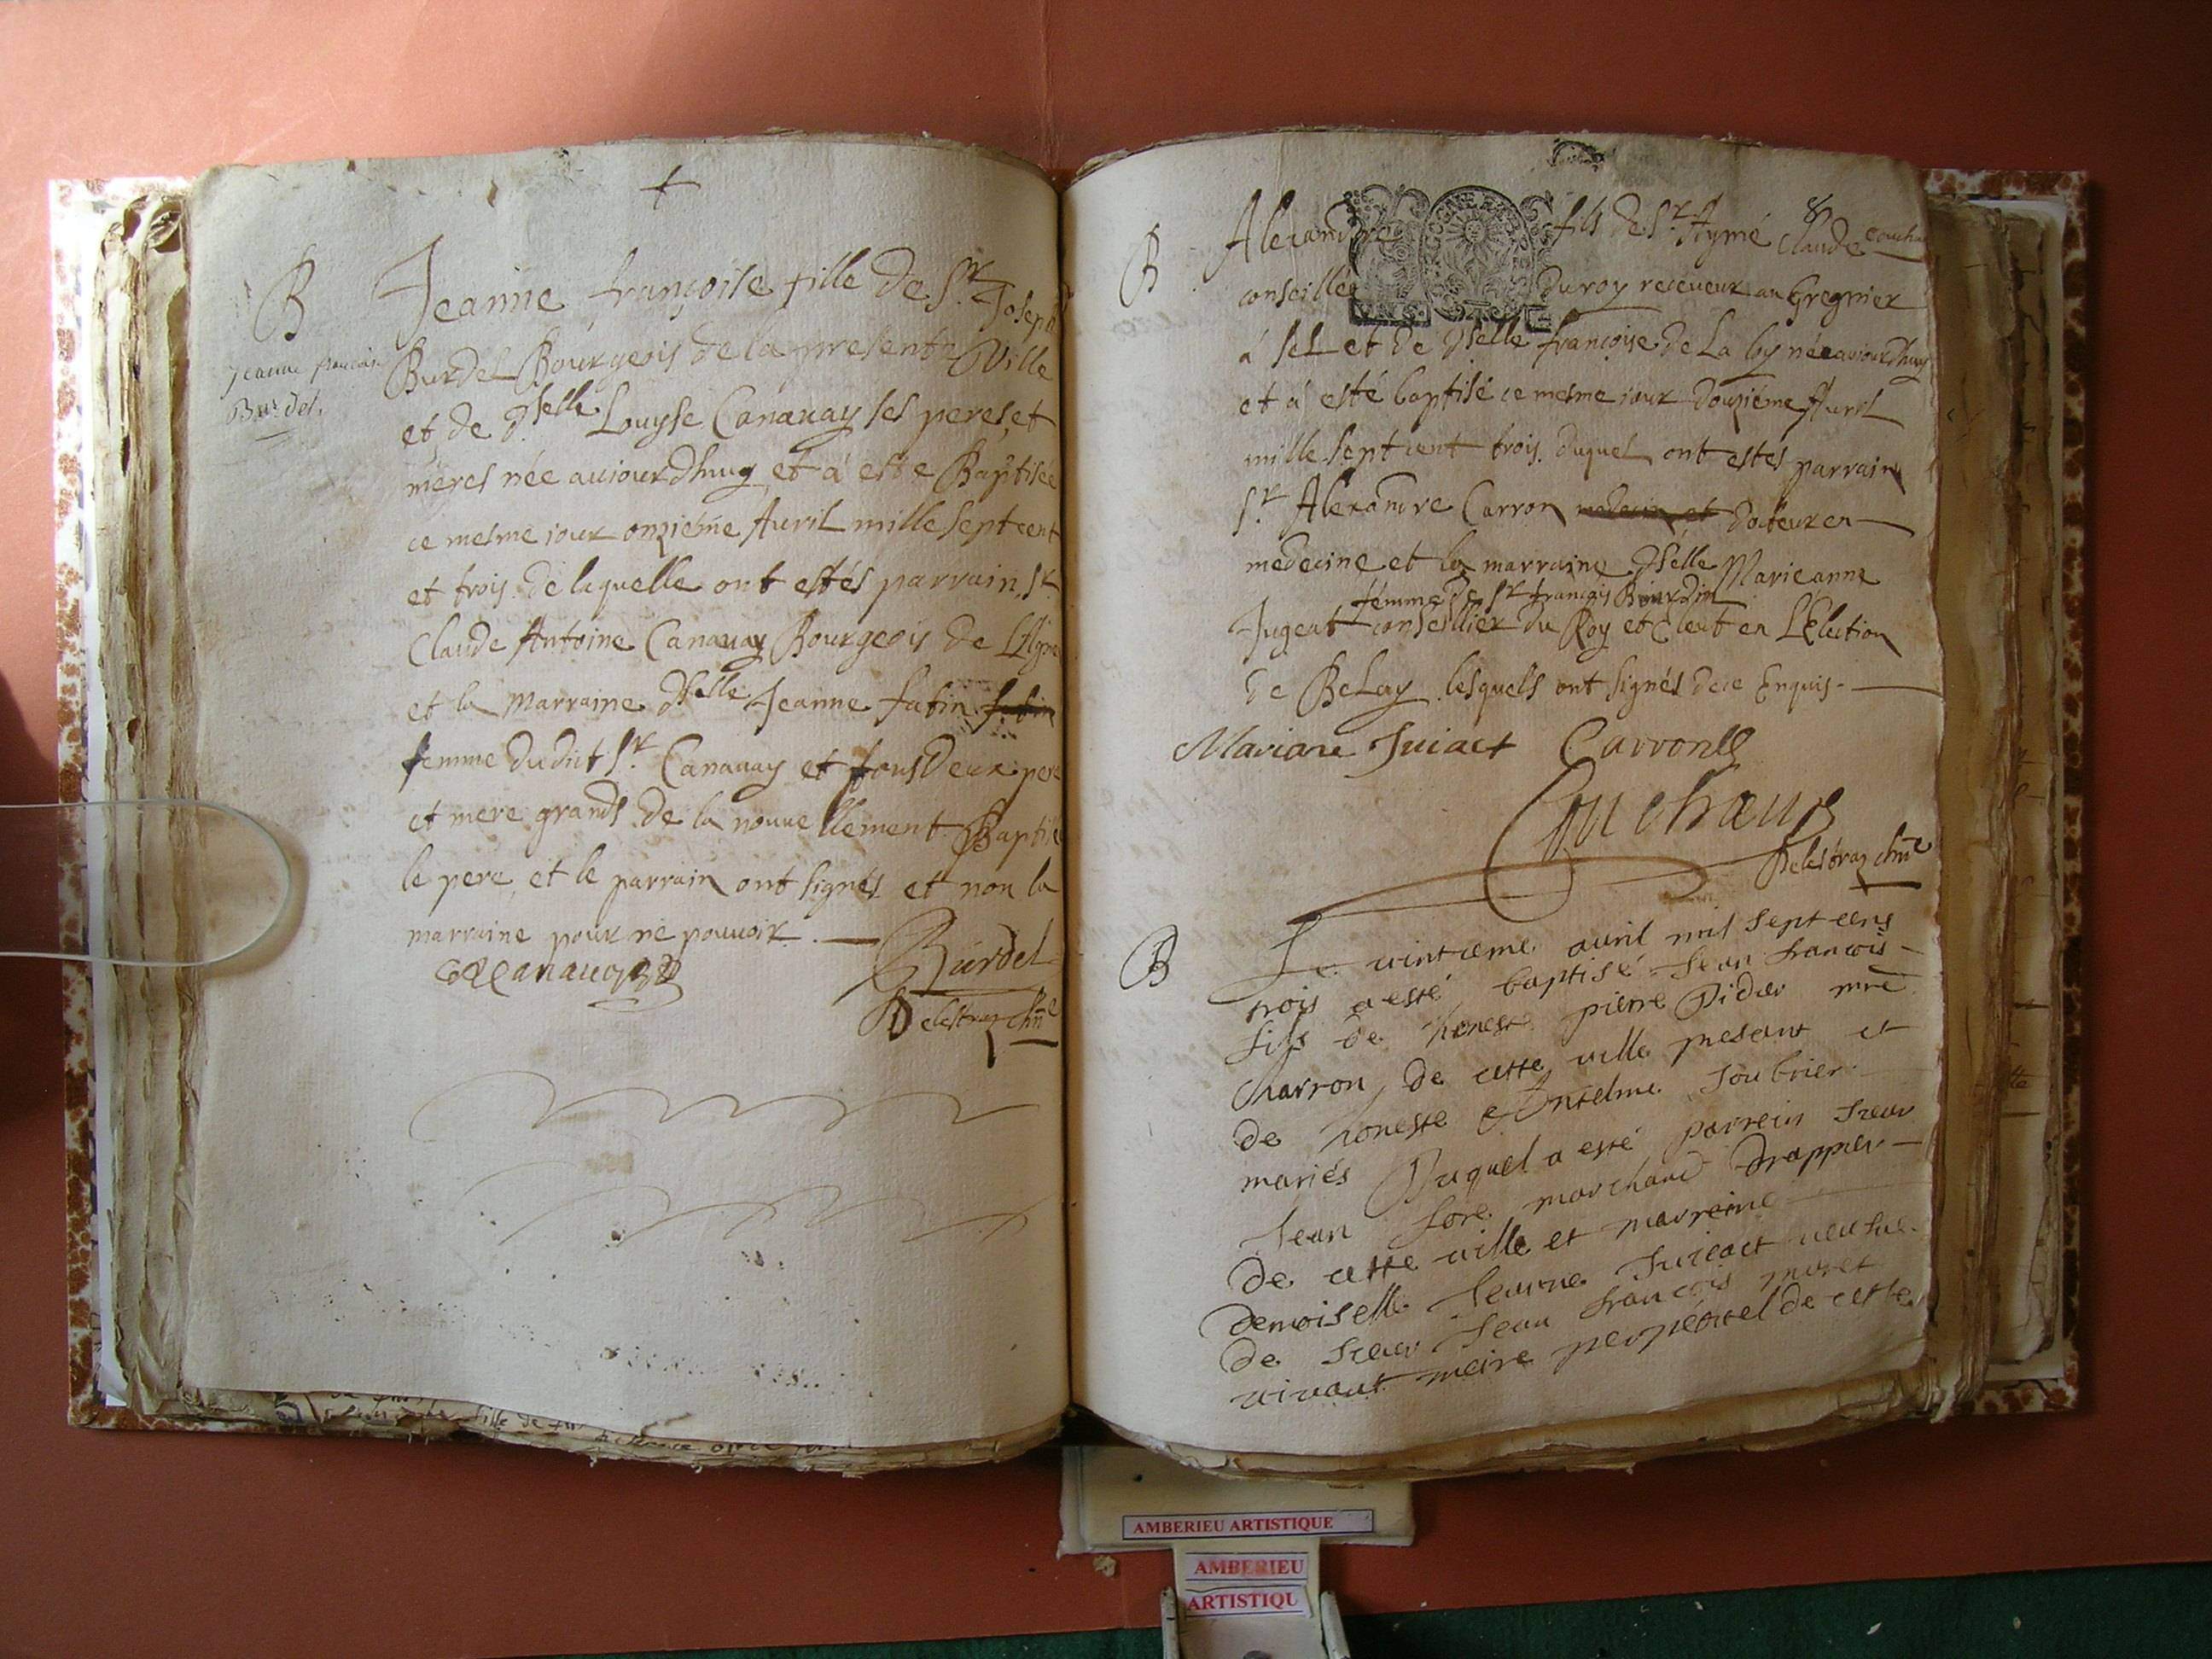 B
Jeanne françoise
Burdel.
Jeanne françoise fille de Sr. Joseph
Burdel Bourgeois de la presente Ville
et de dselle Louyse Canauay ses peres, et
meres née auiourdhuy et à esté Baptisée
ce mesme iour onziéme Auril mille sept cent
et trois. de laquelle ont estés parrain Sr.
Claude Antoine Canauay Bourgeois de
et la marraine dselle Jeanne fatin fatin
femme dudict Sr. Canauay et tous deux pere
et mere grands de la nouuellement Baptisé
le pere, et le parrain ont signés et non la
marraine pour ne pouuoir.
Canauay Burdel
Delestraz chne
8
B
Alexandre fils de Sr. Aymé Claude couchaux
conseiller du roy receueur au Gregnier
à sel et de dselle françoise de La Gy née auiourdhuy
et à esté baptisé ce mesme iour douziéme Auril
mille sept cent trois. duquel ont estés parrain
Sr. Alexandre Carron medecin et docteur en
medecine et la marraine dselle Marieanne
femme de Sr françois Bourdin
Jugeat conseillier du Roy et Eleut en L'Election
de Belay lesquels ont signés de ce Enquis.
Mariane Juiact Carron
Couchaux
Delestraz chne
B
Le vintieme auril mil sept cens
trois a esté baptisé Jean francois
fils de honeste pierre Didier mre
charron de cette ville presant et
de honeste Antelme Joubrier
mariés Duquel a esté parrein sieur
Jean fore marchand drappier
de cette ville et marreine
demoiselle Jeanne Juieact veufue
de sieur Jean francois muret
vivant meire perpétuel de cette
AMBERIEU ARTISTIQUE
AMBERIEU
ARTISTIQU